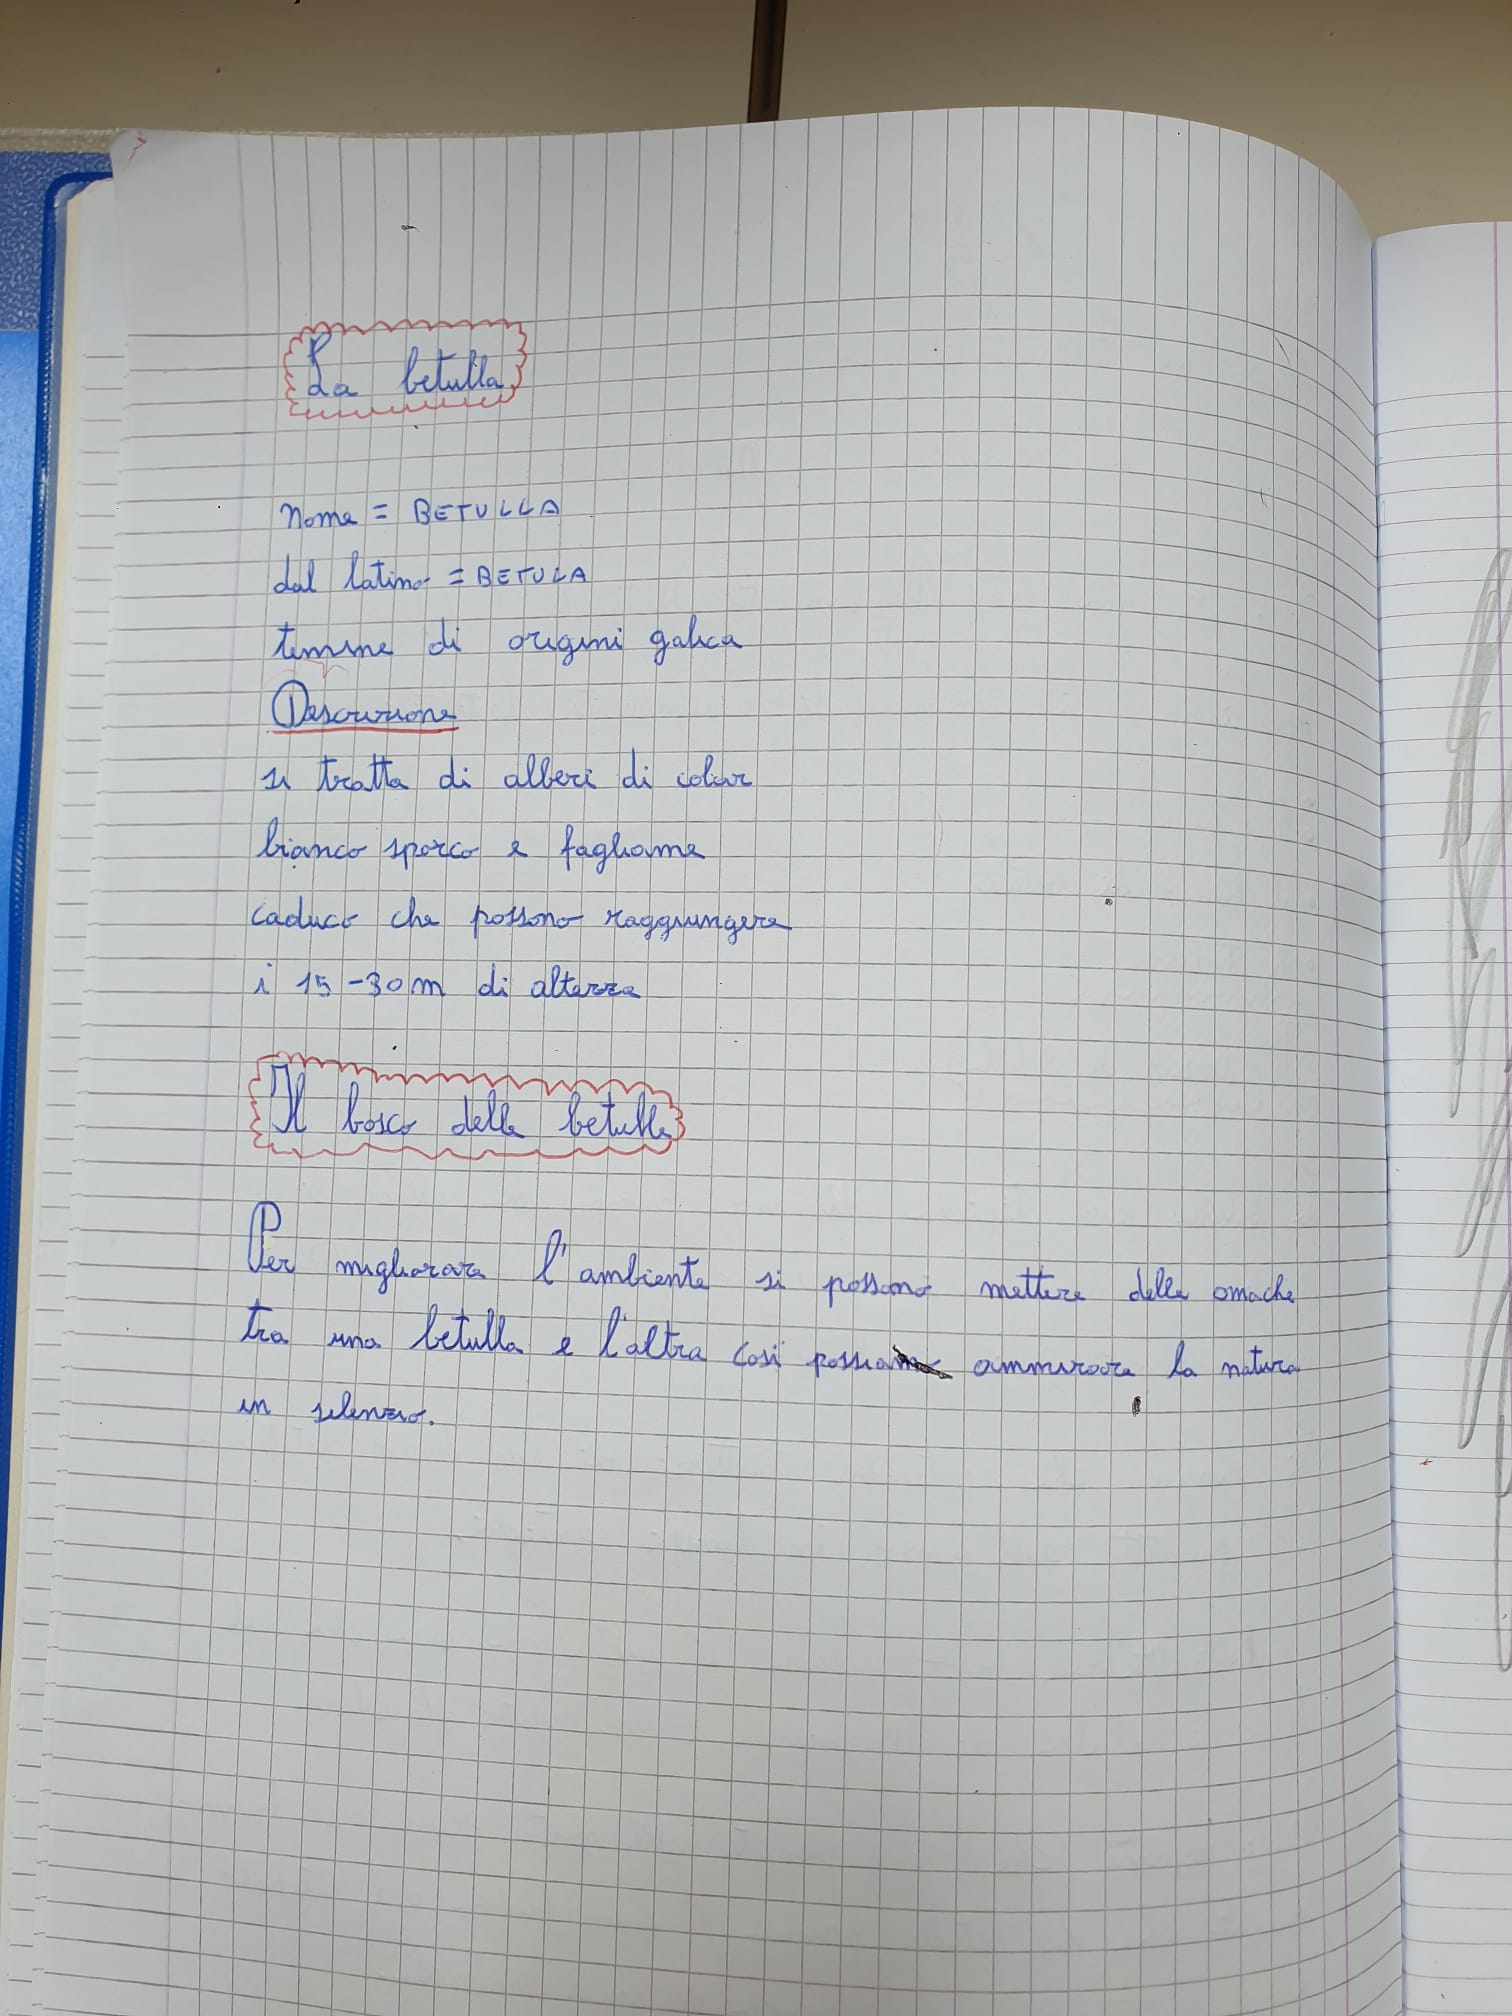 La betulla
nome = BETULLA
dal latino = BETULA
termine di origini galica
Descrizione
si tratta di alberi di color
bianco sporco e fogliame
caduco che possono raggiungere
i 15-30m di altezza
Il bosco delle betulle
Per migliorare l'ambiente si possono mettere delle amache
tra una betulla e l'altra così ammirare la natura
in silenzio.